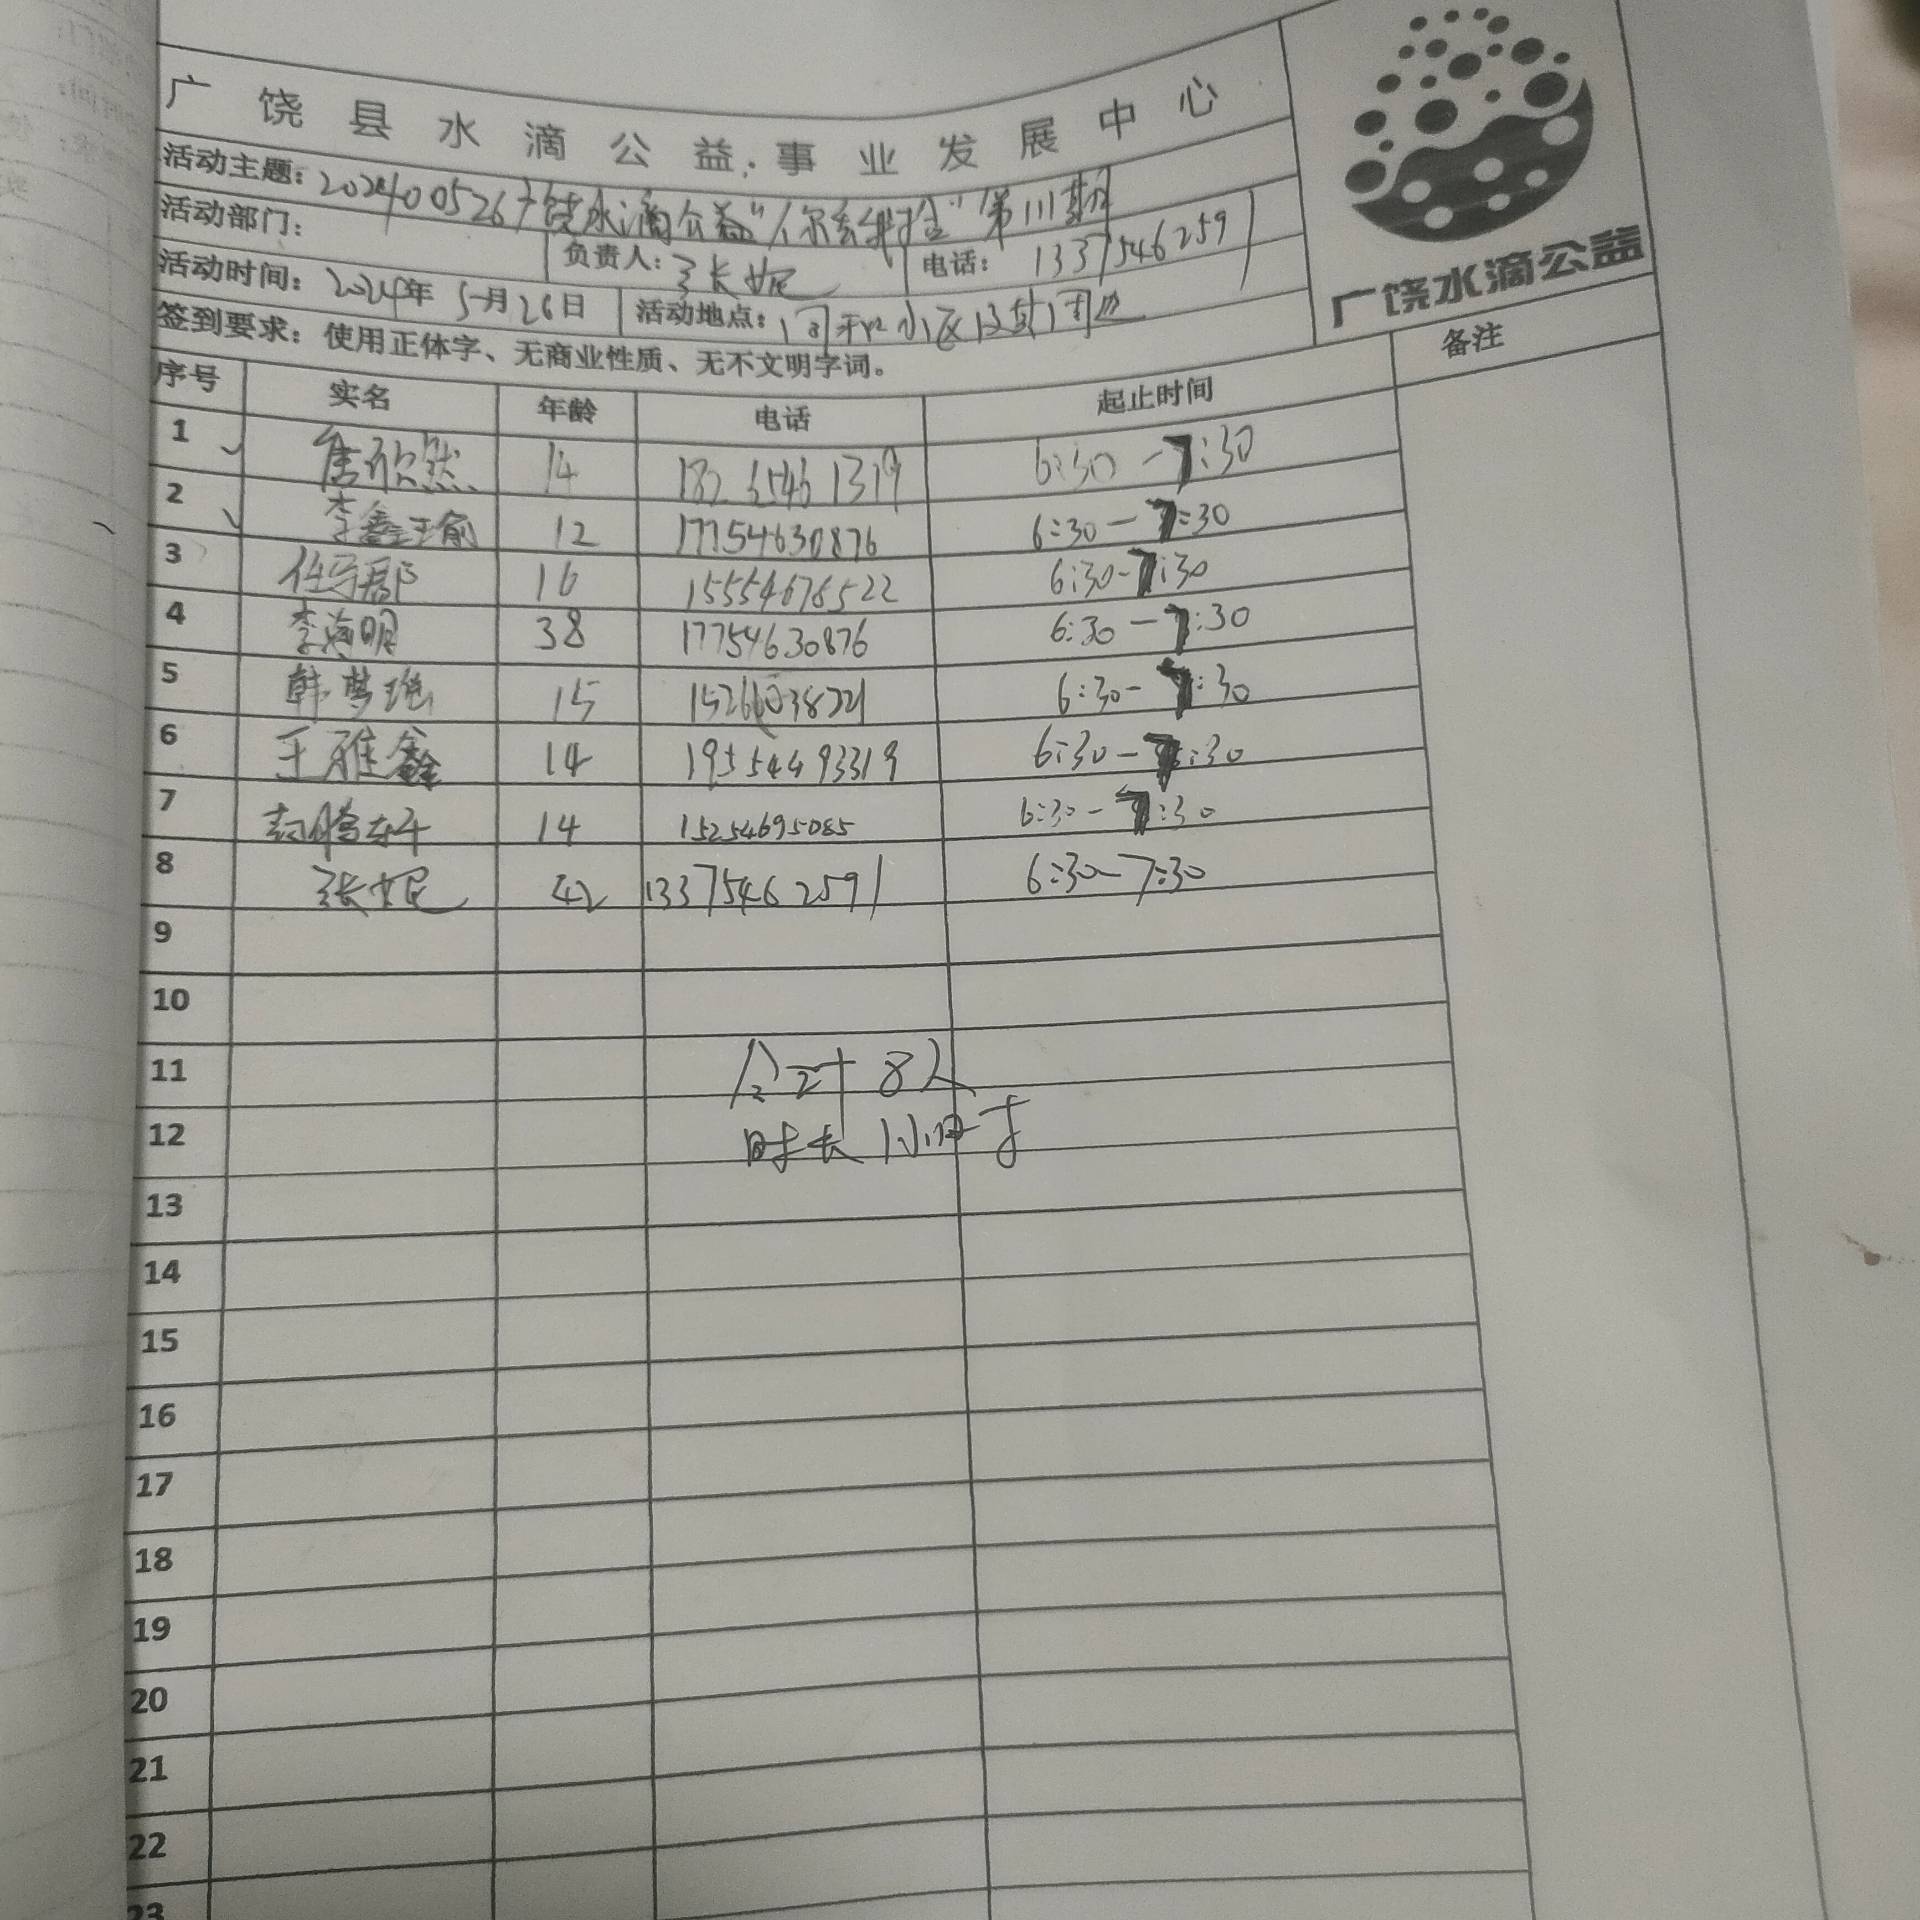 广饶县水滴公益事业发展中心
广饶水滴公益
活动主题：202400526广饶水滴公益“你丢我捡”第111期
活动部门： 负责人：张妮 电话：13375462591
活动时间：2024年5月26日 活动地点：同和小区及其周边
签到要求：使用正体字、无商业性质、无不文明字词。
序号 实名 年龄 电话 起止时间 备注
1 焦欣然 14 6:30-7:30
2 李鑫 12 17754630876 6:30-7:30
3 16 15554676522 6:30-7:30
4 李海明 38 17754630876 6:30-7:30
5 韩梦瑶 15 15266038721 6:30-7:30
6 王雅鑫 14 19554493319 6:30-7:30
7 14 15254695085 6:30-7:30
8 张妮 42 13375462591 6:30-7:30
9
10
11 合计8人
12 时长1小时
13
14
15
16
17
18
19
20
21
22
23